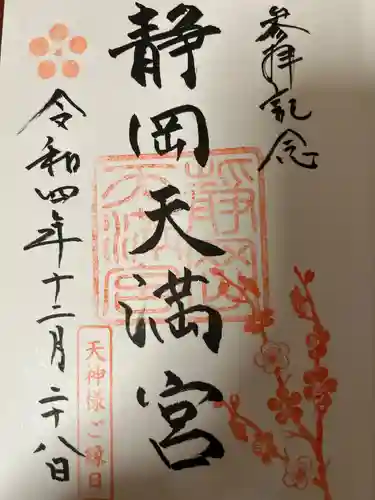 参拝記念
静岡天満宮
静岡天満宮
令和四年十二月二十八日
天神様ご縁日